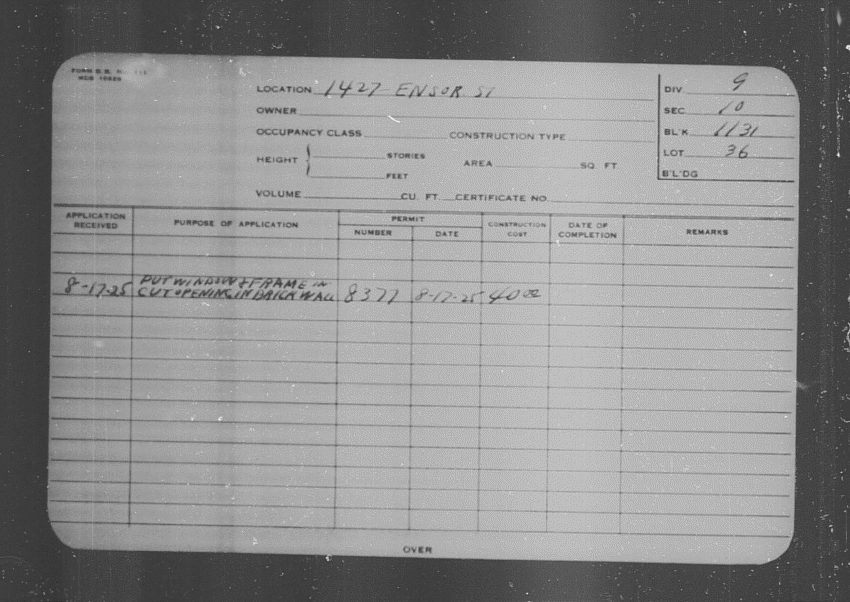 FORM B.B. No. 
MDB 10628
LOCATION 1427 ENSOR ST
OWNER
OCCUPANCY CLASS CONSTRUCTION TYPE
HEIGHT { STORIES AREA SQ. FT
FEET
VOLUME CU. FT. CERTIFICATE NO.
DIV. 9
SEC. 10
BL'K 1131
LOT 36
B'L'DG
APPLICATION RECEIVED PURPOSE OF APPLICATION PERMIT CONSTRUCTION COST DATE OF COMPLETION REMARKS
NUMBER DATE
8-17-25 PUT WINDOW & FRAME IN
CUT OPENING IN BRICK WALL 8377 8-17-25 40 00
OVER